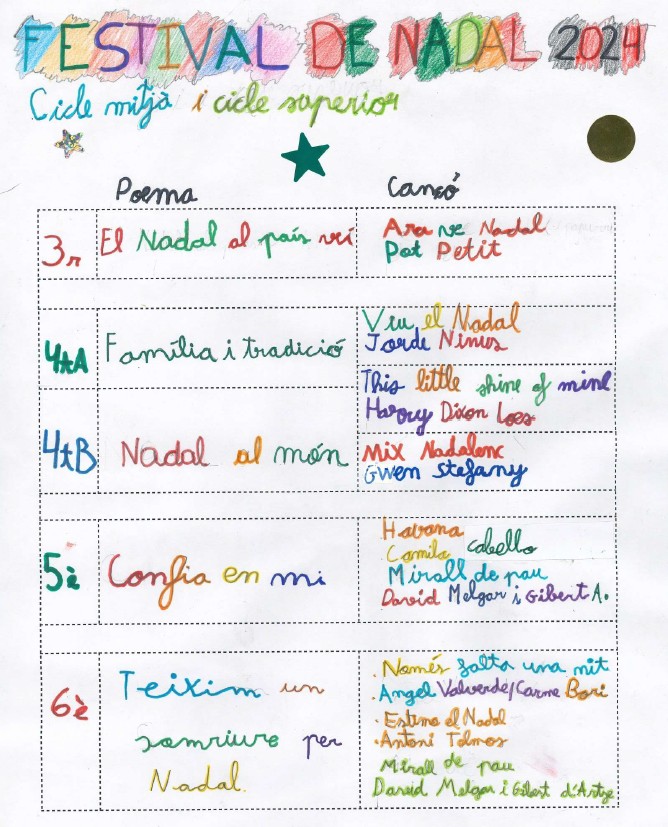 FESTIVAL DE NADAL 2024
Cicle mitjà i cicle superior
Poema
Cançó
3r
El Nadal al país veí
Ara ve Nadal
Pot Petit
4tA
Família i tradició
Viu el Nadal
Jorde Ninus
This little shine of mine
Harry Dixon Loes
4tB
Nadal al món
Mix Nadalenc
Gwen Stefany
5è
Confia en mi
Havana
Camila Cabello
Mirall de pau
David Melgar i Gibert A.
6è
Teixim un
somriure per
Nadal.
· Només falta una nit
· Angel Valverde/Carme Bori
· Estima el Nadal
· Antoni Tolmos
Mirall de pau
David Melgar i Gibert d'Artze